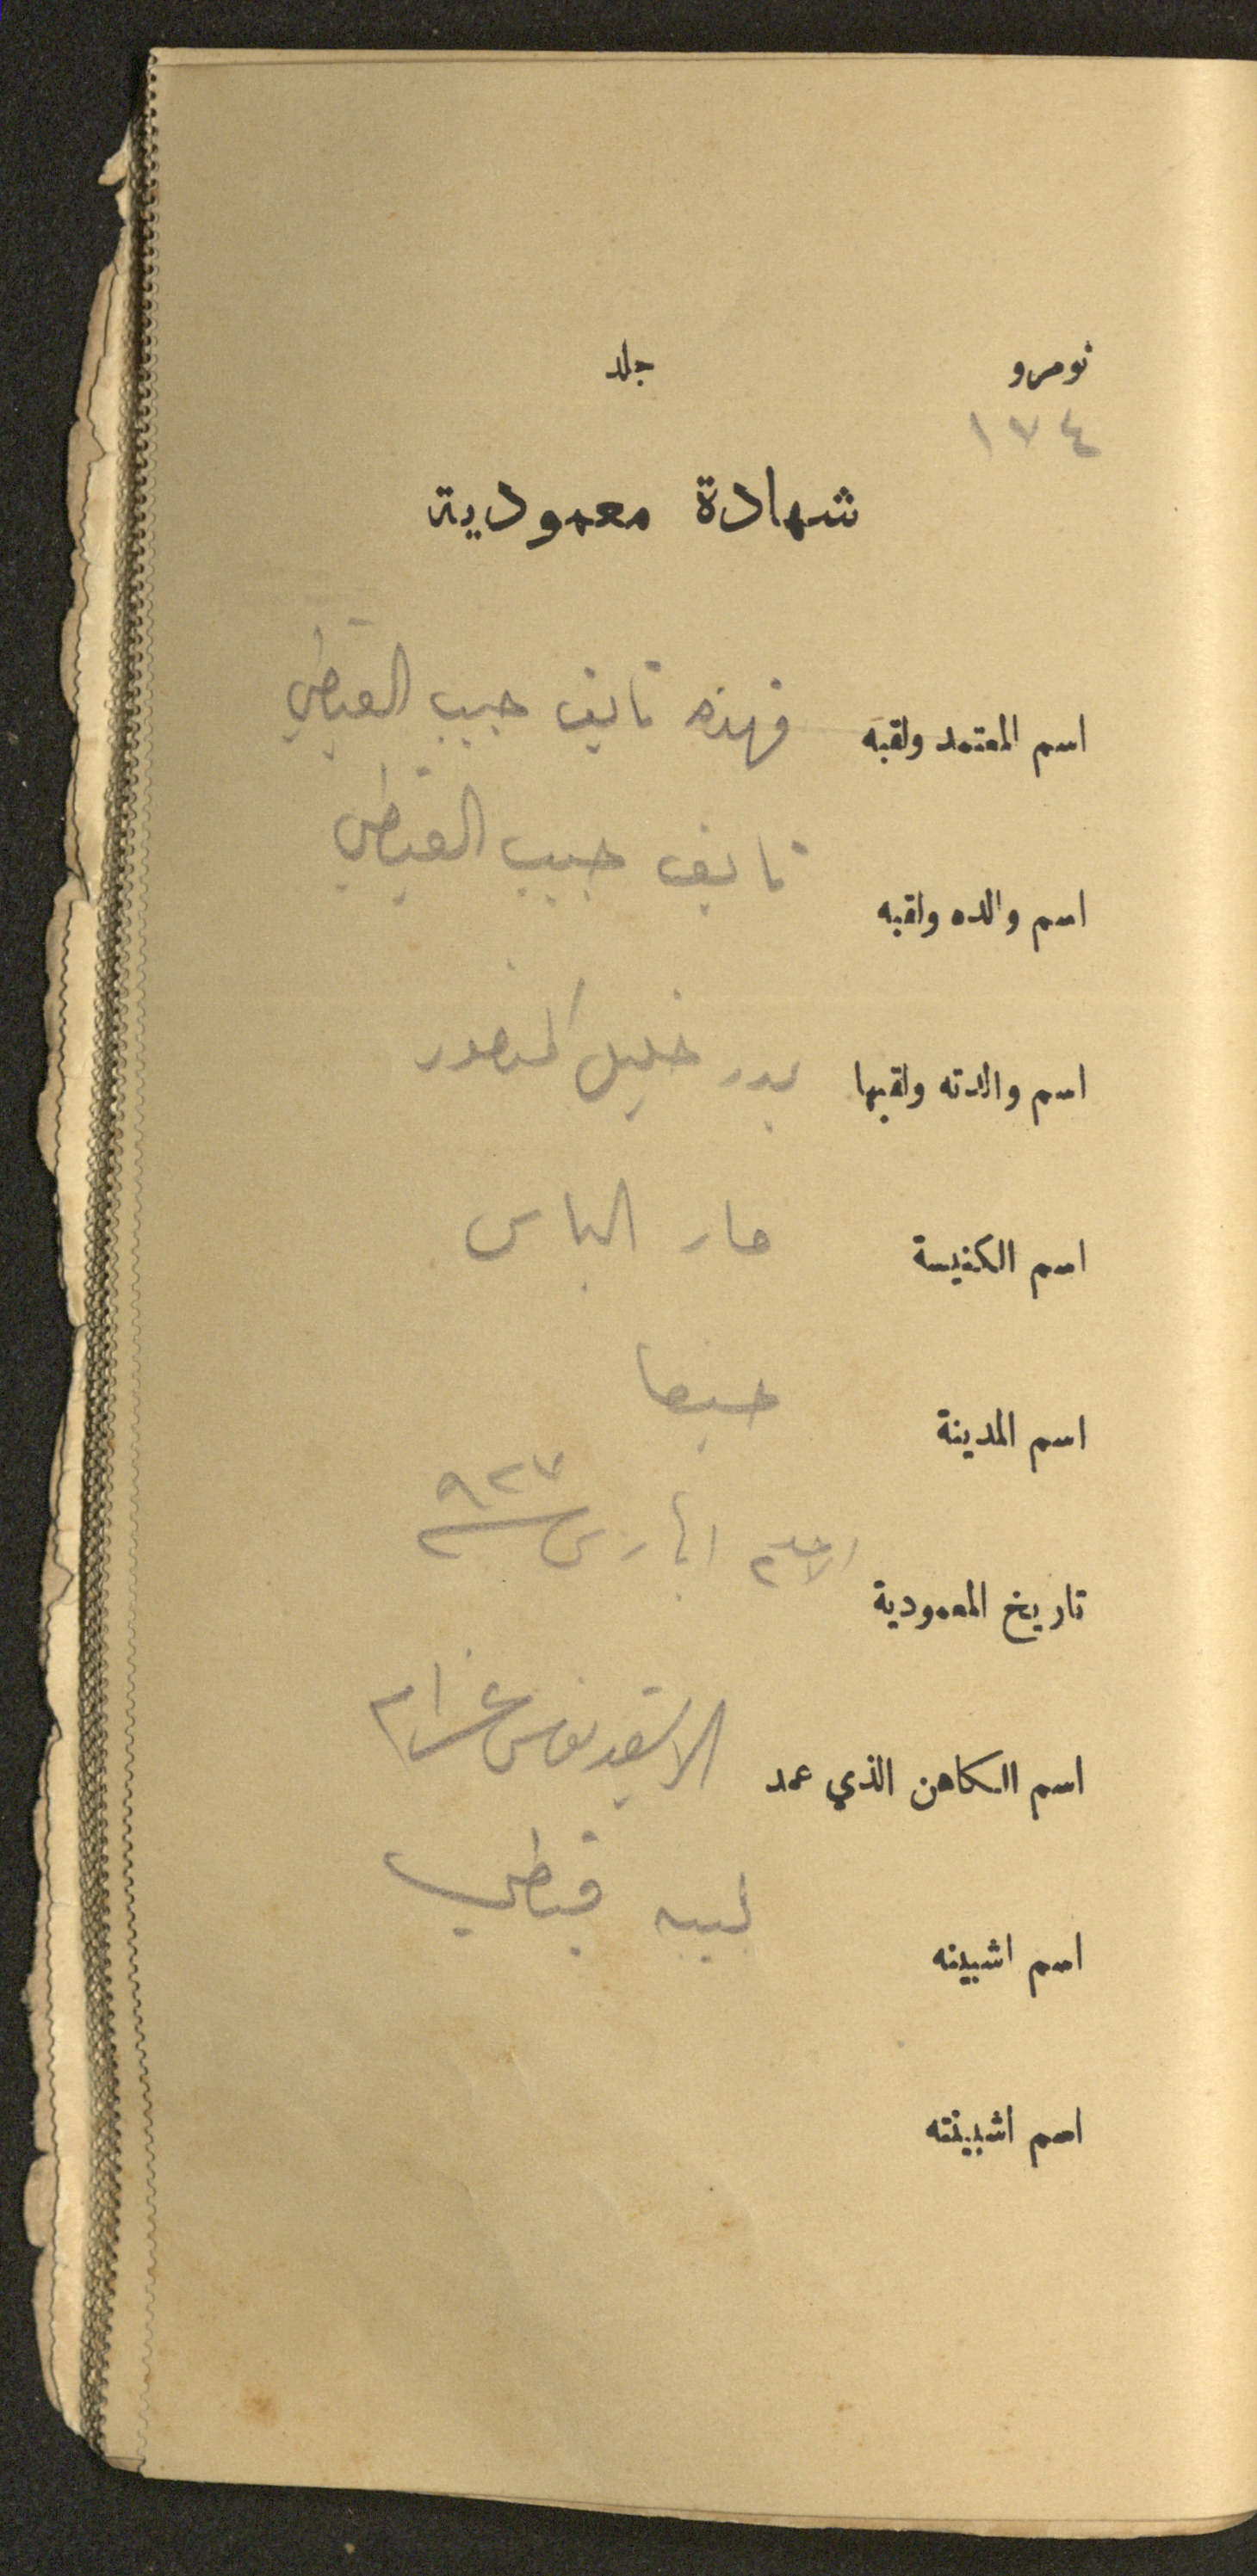 نومرو جلد
١٧٤
شهادة معمودية
اسم المعتمد ولقبه نايف حبيب القبطي
اسم والده ولقبه نايف حبيب القبطي
اسم والدته ولقبها بدر خليل المنصور
اسم الكنيسة مار الياس
اسم المدينة حيفا
تاريخ المعمودية الاحد ٩٢٧
اسم الكاهن الذي عمد
اسم اشبينه لبيبه قبطي
اسم اشبينته